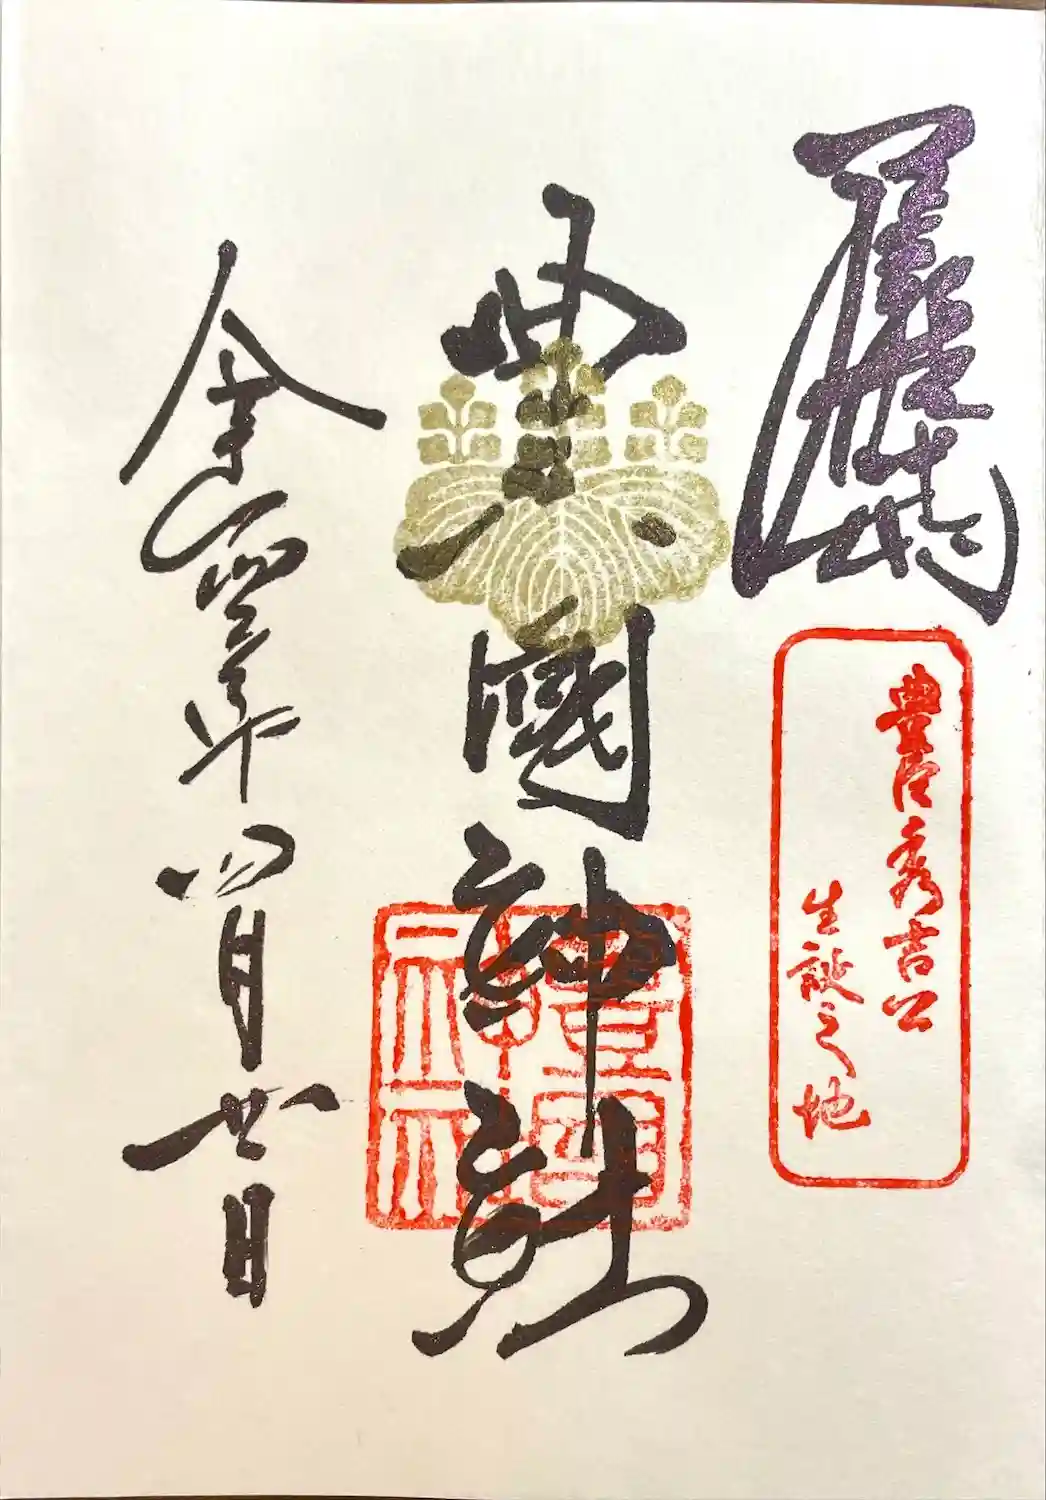 豊臣秀吉公
生誕之地
豊國神社
豊國神社
令和四年四月廿日